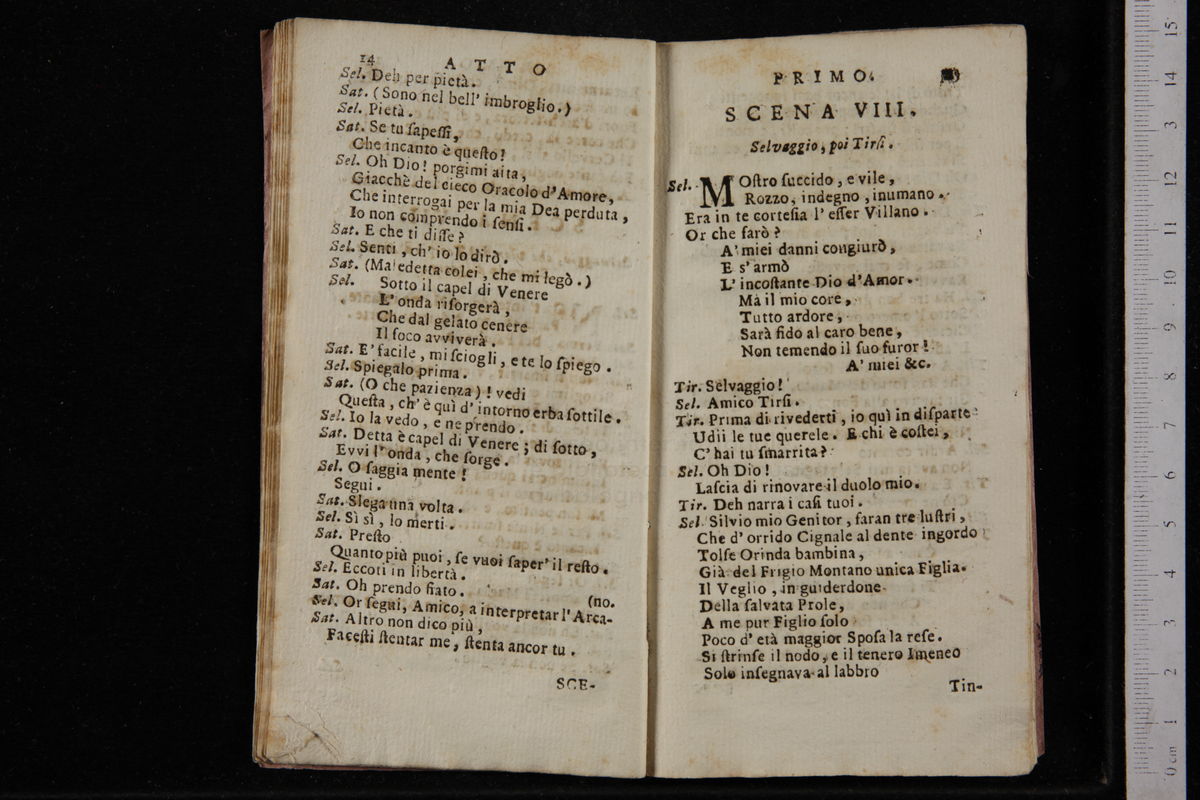 14 ATTO
Sel. Deh per pietà.
Sat. (Sono nel bell' imbroglio.)
Sel. Pietà.
Sat. Se tu ſapeſſi,
Che incanto è queſto!
Sel. Oh Dio! porgimi aita,
Giacchè del cieco Oracolo d'Amore,
Che interrogai per la mia Dea perduta,
Io non comprendo i ſenſi.
Sat. E che ti diſſe?
Sel. Senti, ch' io lo dirò.
Sat. (Maledetta colei, che mi legò.)
Sel. Sotto il capel di Venere
L'onda riſorgerà,
Che dal gelato cenere
Il foco avviverà.
Sat. E' facile, mi ſciogli, e te lo ſpiego.
Sel. Spiegalo prima.
Sat. (O che pazienza)! vedi
Queſta, ch' è quì d' intorno erba ſottile.
Sel. Io la vedo, e ne prendo.
Sat. Detta è capel di Venere; di ſotto,
Evvi l'onda, che ſorge.
Sel. O ſaggia mente!
Segui.
Sat. Slega una volta.
Sel. Sì sì, lo merti.
Sat. Preſto
Quanto più puoi, ſe vuoi ſaper' il reſto.
Sel. Eccoti in libertà.
Sat. Oh prendo fiato. (no.
Sel. Or ſegui, Amico, a interpretar l' Arca-
Sat. Altro non dico più,
Faceſti ſtentar me, ſtenta ancor tu.
SCE-
PRIMO.
SCENA VIII.
Selvaggio, poi Tirſi.
Sel. MOſtro ſuccido, e vile,
Rozzo, indegno, inumano.
Era in te corteſia l' eſſer Villano.
Or che farò?
A' miei danni congiurò,
E s' armò
L' incoſtante Dio d'Amor.
Mà il mio core,
Tutto ardore,
Sarà fido al caro bene,
Non temendo il ſuo furor!
A' miei &c.
Tir. Selvaggio!
Sel. Amico Tirſi.
Tir. Prima di rivederti, io quì in diſparte
Udii le tue querele. E chi è coſtei,
C' hai tu ſmarrita?
Sel. Oh Dio!
Laſcia di rinovare il duolo mio.
Tir. Deh narra i caſi tuoi.
Sel. Silvio mio Genitor, ſaran tre luſtri,
Che d' orrido Cignale al dente ingordo
Tolſe Orinda bambina,
Già del Frigio Montano unica Figlia.
Il Veglio, in guiderdone
Della ſalvata Prole,
A me pur Figlio ſolo
Poco d' età maggior Spoſa la reſe.
Si ſtrinſe il nodo, e il tenero Imeneo
Solo inſegnava al labbro
Tin-
0 cm 1 2 3 4 5 6 7 8 9 10 11 12 13 14 15